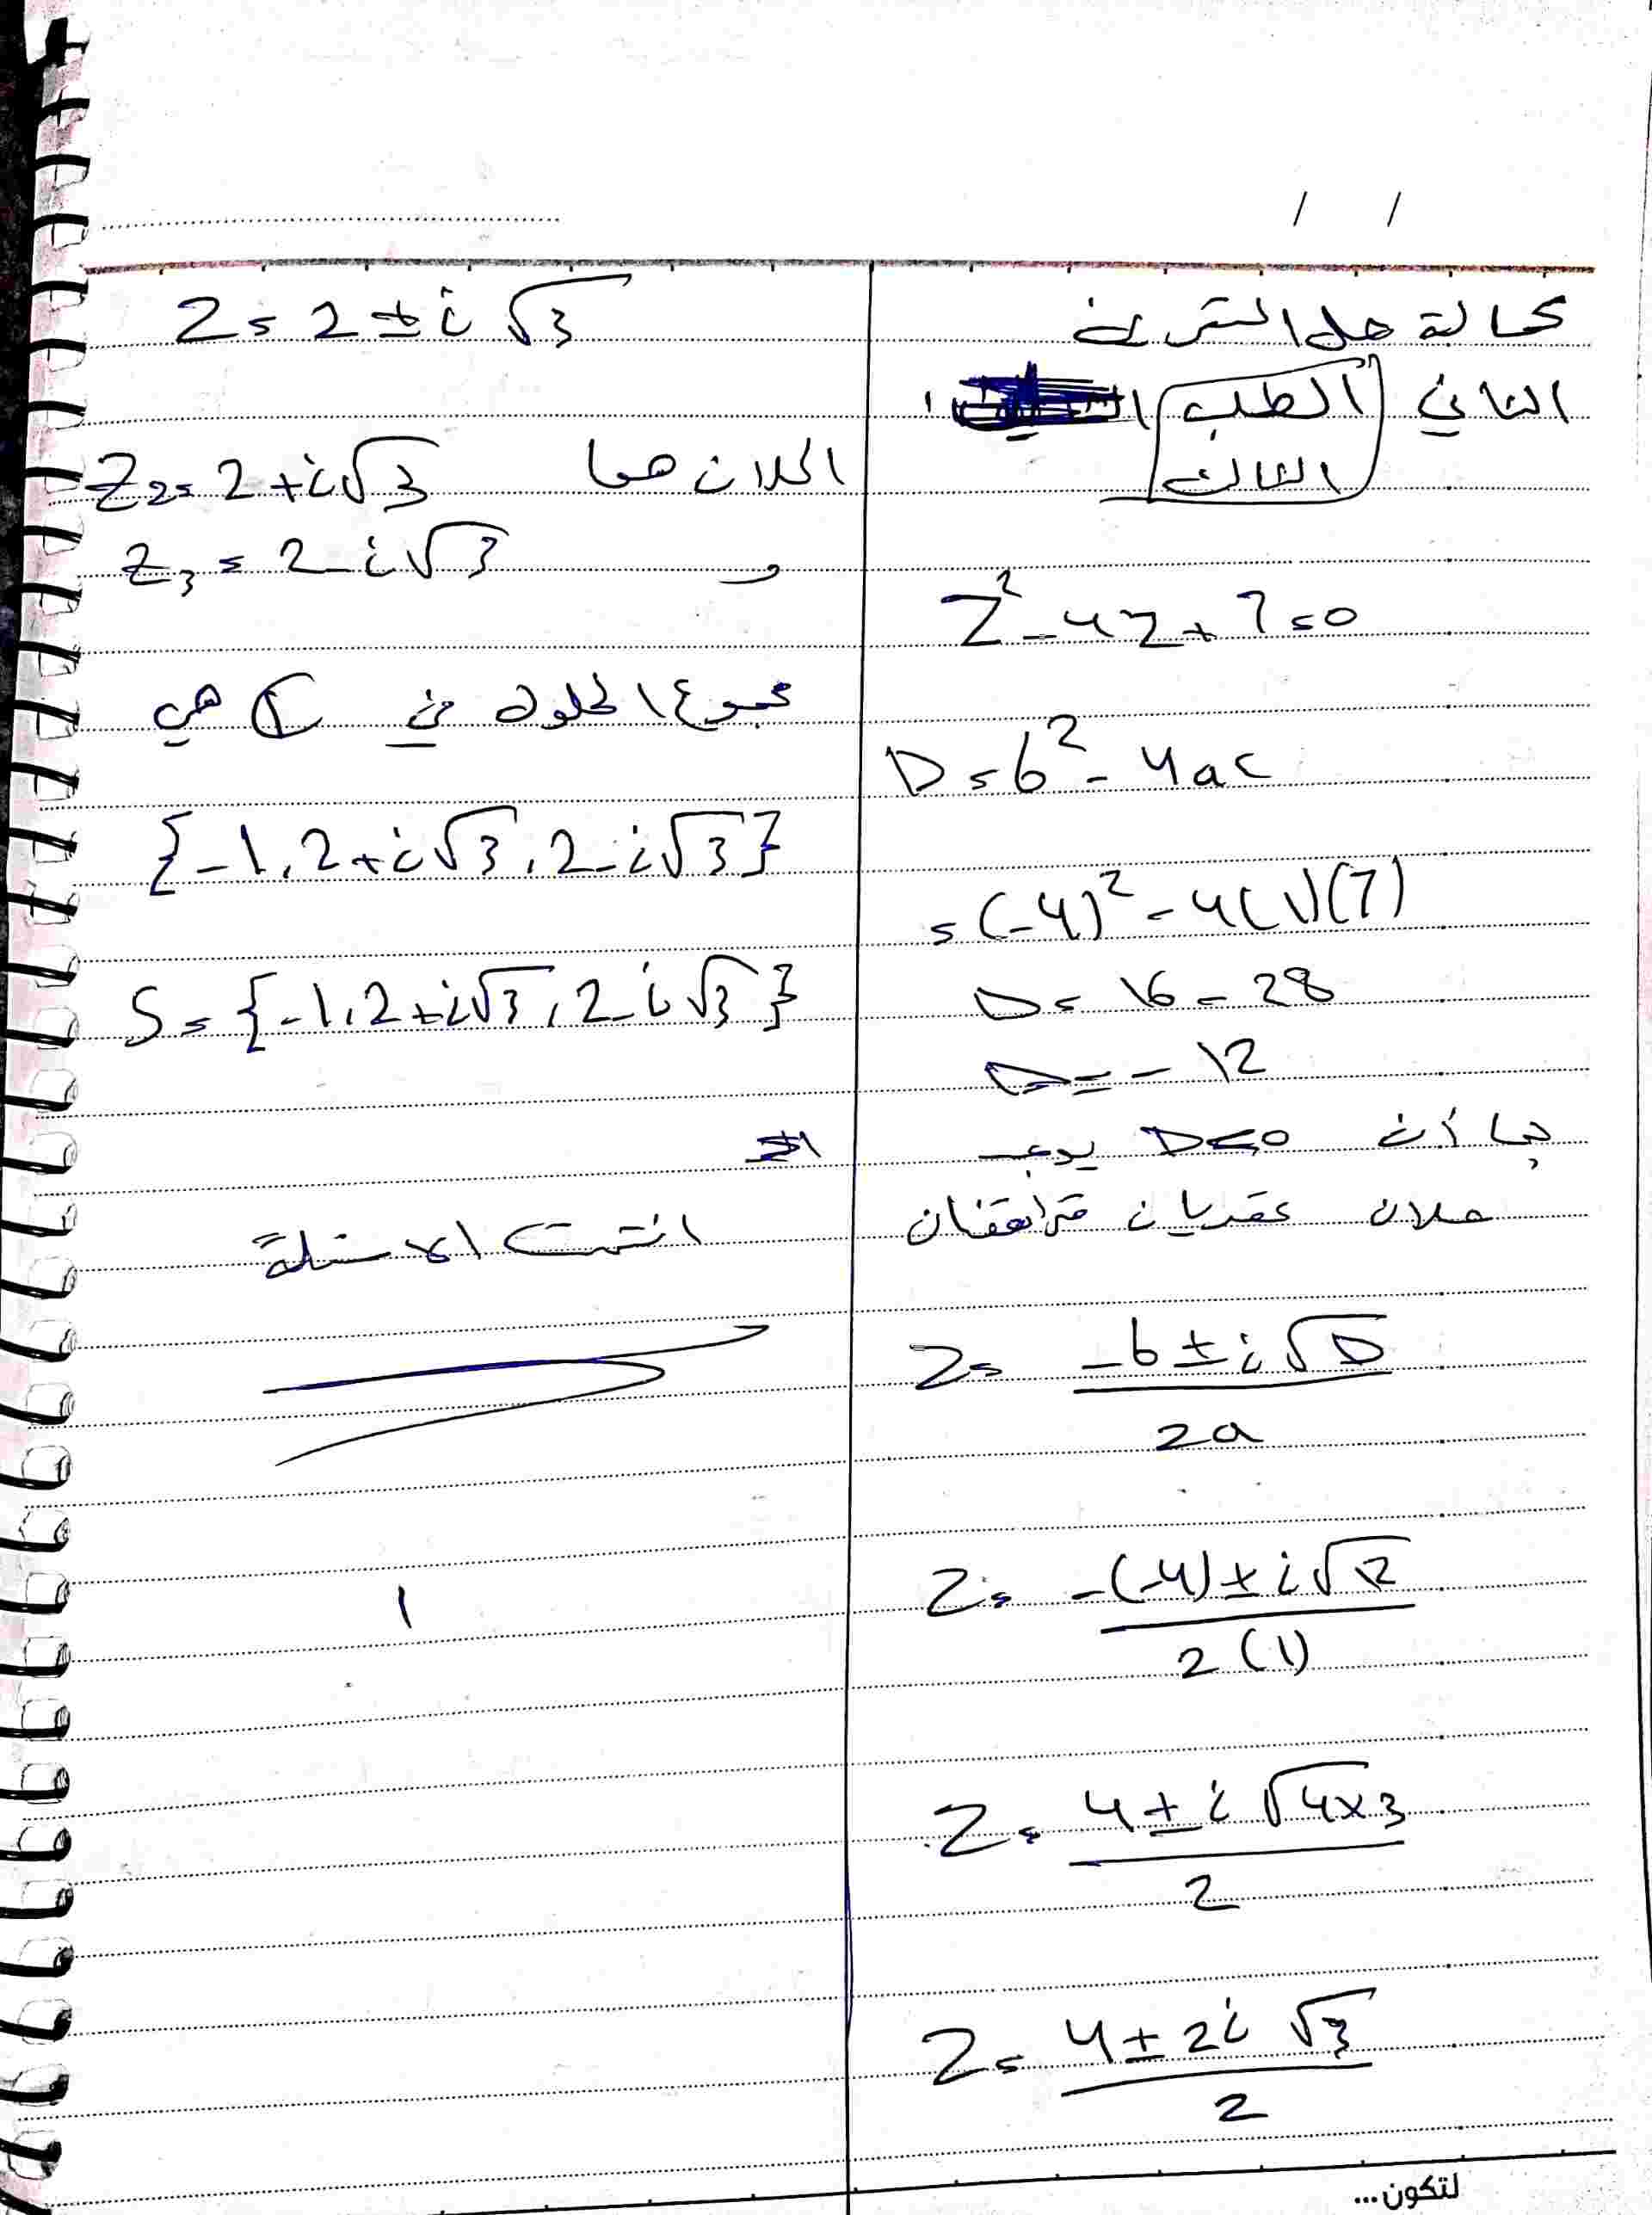 / /
كمالة حل التمرين
الثاني الطلب
الثالث
Z² - 4Z + 7 = 0
D = b² - 4ac
= (-4)² - 4(1)(7)
D = 16 - 28
D = - 12
بما أن D<0 يوجد
حلان عقديان مترافقان
Z = -b ± i√D / 2a
Z = -(-4) ± i√12 / 2(1)
Z = 4 ± i√4×3 / 2
Z = 4 ± 2i√3 / 2
Z = 2 ± i√3
الحلان هما Z₂ = 2 + i√3
و Z₃ = 2 - i√3
مجموع الحلول في C هي
{-1, 2 + i√3, 2 - i√3}
S = {-1, 2 + i√3, 2 - i√3}
انتهت الاسئلة
لتكون...